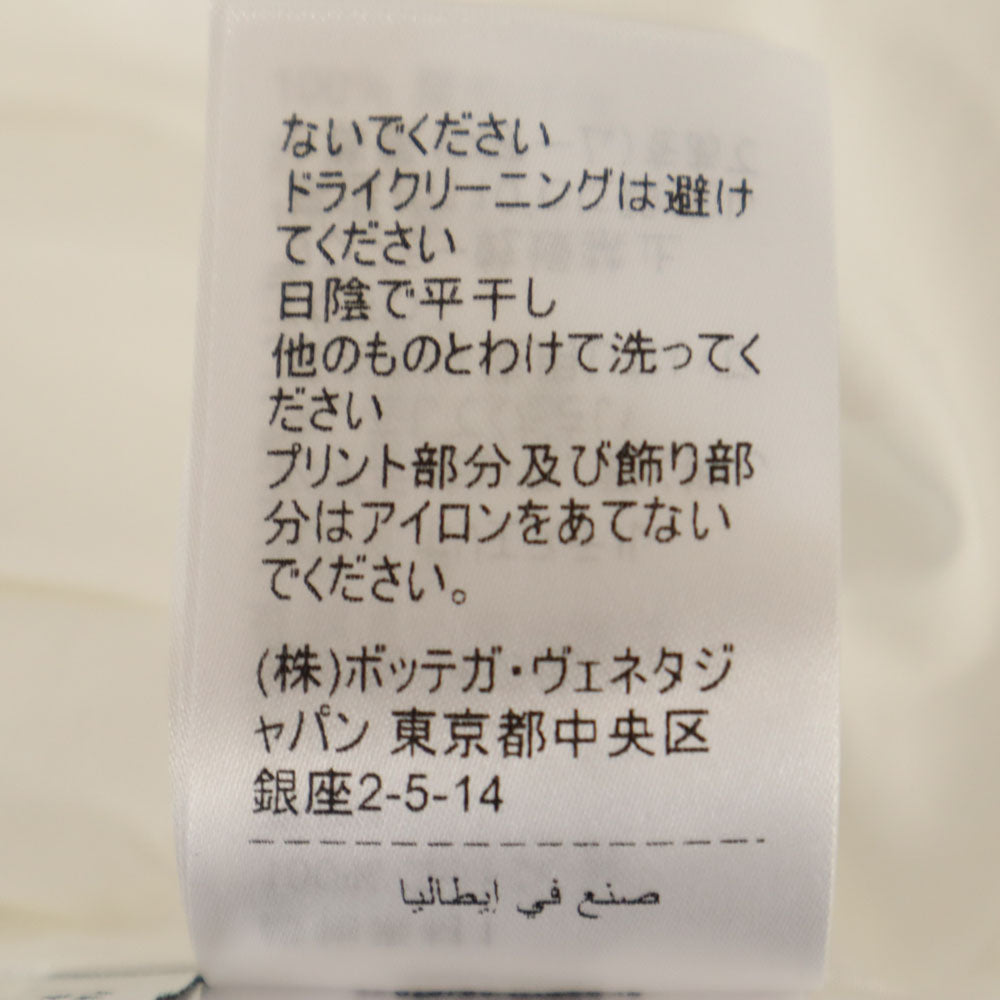 ないでください
ドライクリーニングは避け
てください
日陰で平干し
他のものとわけて洗ってく
ださい
プリント部分及び飾り部
分はアイロンをあてない
でください。
(株)ボッテガ・ヴェネタジ
ャパン 東京都中央区
銀座2-5-14
صنع في إيطاليا